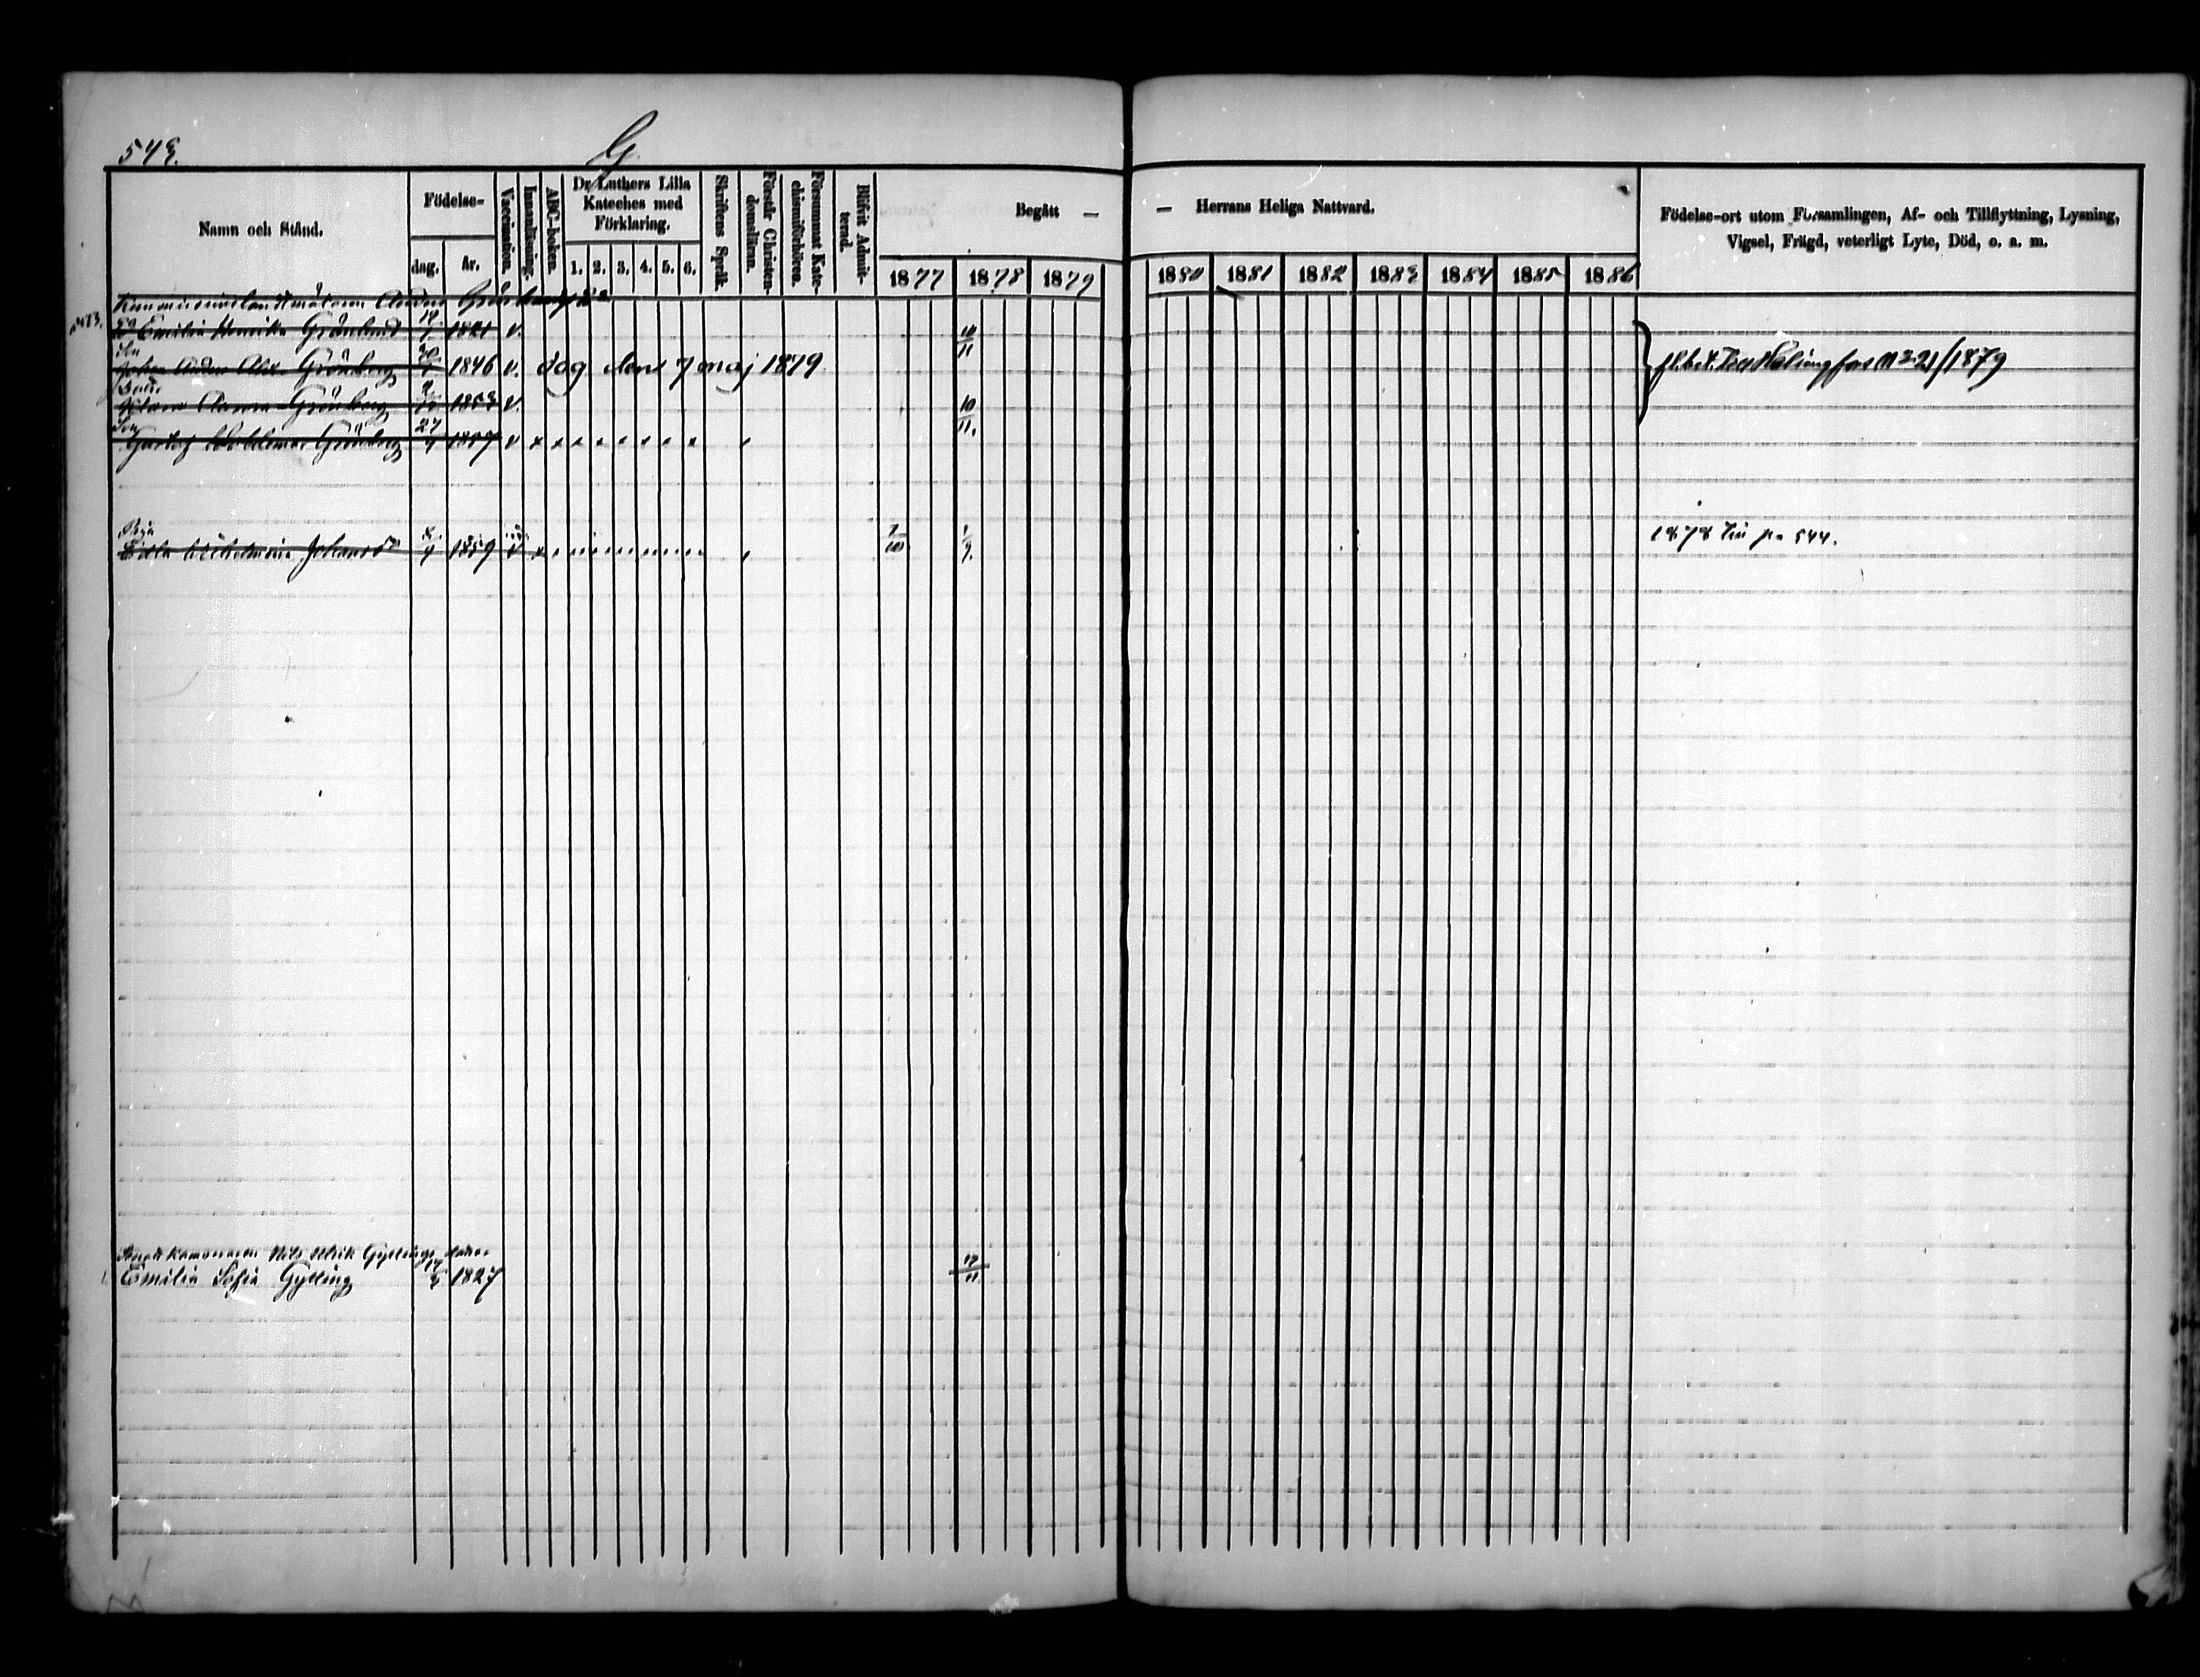 543.
G.
Namn och Stånd.
Födelse-
dag.
år.
Vaccination.
Innanläsning.
ABC-boken.
Dr Luthers Lilla Kateches med Förklaring.
1. 2. 3. 4. 5. 6.
Skriftens Språk.
Förstår Christendomsläran.
Försummat Katechismiförhören.
Blifvit Admitterad.
Begått — — Herrans Heliga Nattvard.
1877 1878 1879 1880 1881 1882 1883 1884 1885 1886
Födelse-ort utom Församlingen, Af- och Tillflyttning, Lysning,
Vigsel, Frägd, veterligt Lyte, Död, o. a. m.
Kommissionslandtmätaren Anders Grönbergs
Emilia Henrika Grönlund 1821 v. 10/11
Son
Johan Anders Alex. Grönberg 1846 v. dog den 7 maj 1879
Klara Anna Grönberg 1853 v. 10/11.
Son
Gustaf Woldemar Grönberg 27/4 1857 v
Helsingfors N 221/1879
Piga
Wilhelmina Johansd 1859 v 7/10 1/9.
1878 p. 544.
Kamereraren Nils Ulrik Gyllings
Emilia Sofia Gylling 1827 17/11.